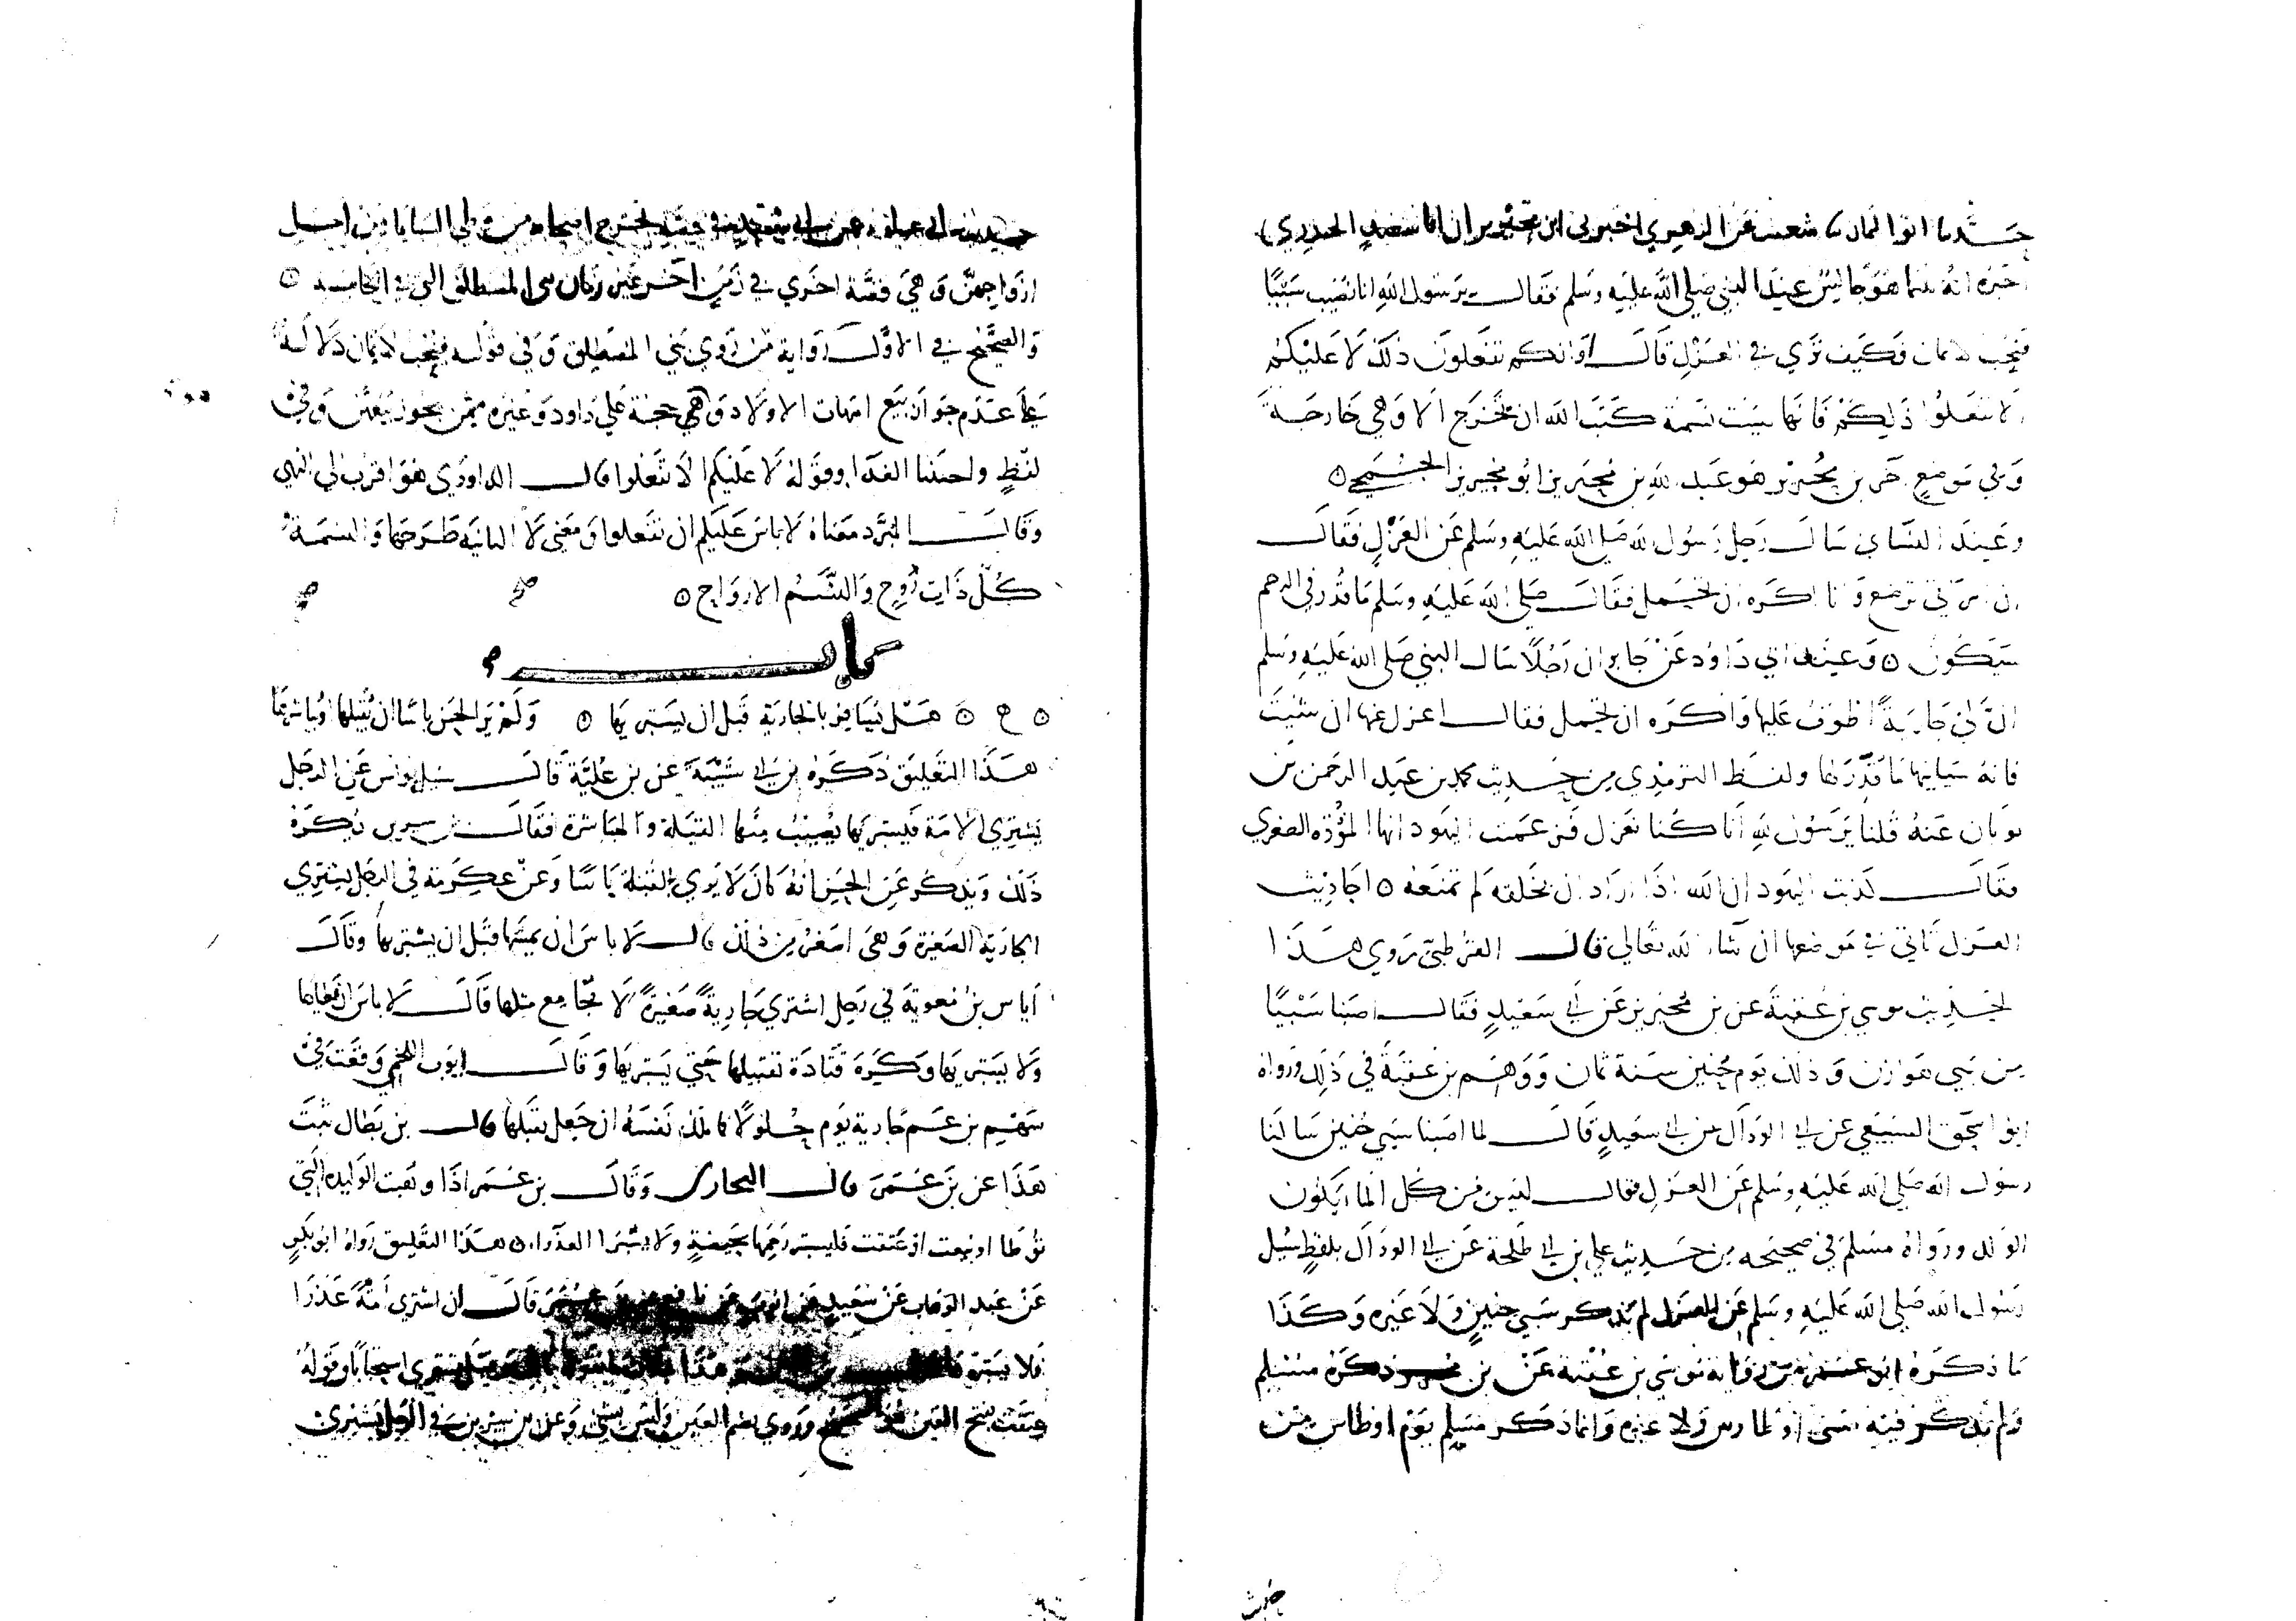 حدثنا ابو اليمان نا شعيب عن الزهري اخبرني ابن محيريز ان ابا سعيد الخدري
اخبره انه بينما هو جالس عند النبي صلى الله عليه وسلم فقال يرسول الله انا نصيب سبيا
فنحب الاثمان فكيف تري في العزل قال اوانكم تفعلون ذلك لا عليكم
الا تفعلوا ذلكم فانها ليست نسمة كتب الله ان تخرج الا وهي خارجة
وفي موضع اخر بن محيريز هو عبد الله بن محيريز ابو محيريز الجمحي
وعند النساي سال رجل رسول الله صلي الله عليه وسلم عن العزل فقال
ان امراتي ترضع وانا اكره ان تحمل فقال صلي الله عليه وسلم ما قدر في الرحم
سيكون وعند ابي داود عن جابر ان رجلا سال النبي صلى الله عليه وسلم
ان لي جارية اطوف عليها واكره ان تحمل فقال اعزل عنها ان شيت
فانه سياتيها ما قدر لها ولفظ الترمذي من حديث محمد بن عبد الرحمن بن
ثوبان عنه قلنا يرسول الله انا كنا نعزل فزعمت اليهود انها الموؤده الصغري
فقال كذبت اليهود ان الله اذا اراد ان يخلقه لم تمنعه احاديث
العزل تاتي في موضعها ان شا الله تعالي قال القرطبي روي هذا
الحديث موسي بن عقبة عن بن محيريز عن ابي سعيد فقال اصبنا سبيا
من سبي هوازن وذلك يوم حنين سنة ثمان ووهم بن عقبة في ذلك ورواه
ابو اسحق السبيعي عن ابي الوداك عن ابي سعيد قال لما اصبنا سبي حنين سالنا
رسول الله صلي الله عليه وسلم عن العزل فقال ليس من كل الما يكون
الولد ورواه مسلم في صحيحه من حديث علي بن ابي طلحة عن ابي الوداك بلفظ سيل
رسول الله صلي الله عليه وسلم عن العزل لم يذكر سبي حنين ولا غيره وكذا
ما ذكره ابو عمر من رواية موسي بن عقبة عن بن محيريز ذكره مسلم
ولم يذكر فيه سبي اوطاس ولا غيره وانما ذكر مسلم يوم اوطاس من
حديث ابي علقمة عن ابي سعيد في تحرج اصحابه من وطي السبايا من اجل
ازواجهن وهي قصة اخري في زمن اخر غير زمان بني المصطلق التي في الخامسة
والصحيح في الاول رواية من روي بني المصطلق وفي قوله فنحب الاثمان دلالة
علي عدم جواز بيع امهات الاولاد وهي حجة علي داود وغيره ممن يجوز بيعهن وفي
لفظ واحببنا الفدا وقوله لا عليكم الا تفعلوا قال الداودي هو اقرب الي النهي
وقال المبرد معناه لا باس عليكم ان تفعلوا ومعني لا الثانيه طرحها والنسمة
كل ذات روح والنسم الارواح
باب
هل يسافر بالجارية قبل ان يستبريها ولم ير الحسن باسا ان يقبلها او يباشرها
هذا التعليق ذكره بن ابي شيبة عن بن علية قال سيل يونس عن الرجل
يشتري الامة فيستبريها يصيب منها القبلة والمباشرة فقال بن سيرين يكره
ذلك ويذكر عن الحسن انه كان لا يري بالقبلة باسا وعن عكرمة في الرجل يشتري
الجارية الصغيرة وهي اصغر من ذلك قال لا باس ان يمسها قبل ان يستبريها وقال
اياس بن معوية في رجل اشتري جارية صغيرة لا يجامع مثلها قال لا باس ان يطاها
ولا يستبريها وكره قتادة تقبيلها حتي يستبريها وقال ايوب اللخمي وقعت في
سهم بن عمر جارية يوم جلولا فما ملك نفسه ان جعل يقبلها قال بن بطال ثبت
هذا عن بن عمر قال البخاري وقال بن عمر اذا وهبت الوليده التي
توطا او بيعت او عتقت فليستبر رحمها بحيضة ولا يستبرا العذرا هذا التعليق رواه ابو بكر
عن عبد الوهاب عن سعيد عن ايوب عن نافع عن بن عمر قال ان اشتري امة عذرا
فلا يستبريها استحبابا وقوله
عتقت بفتح العين هو الصحيح وروي بضم العين وليس بشي وعن بن سيرين في الرجل يشتري